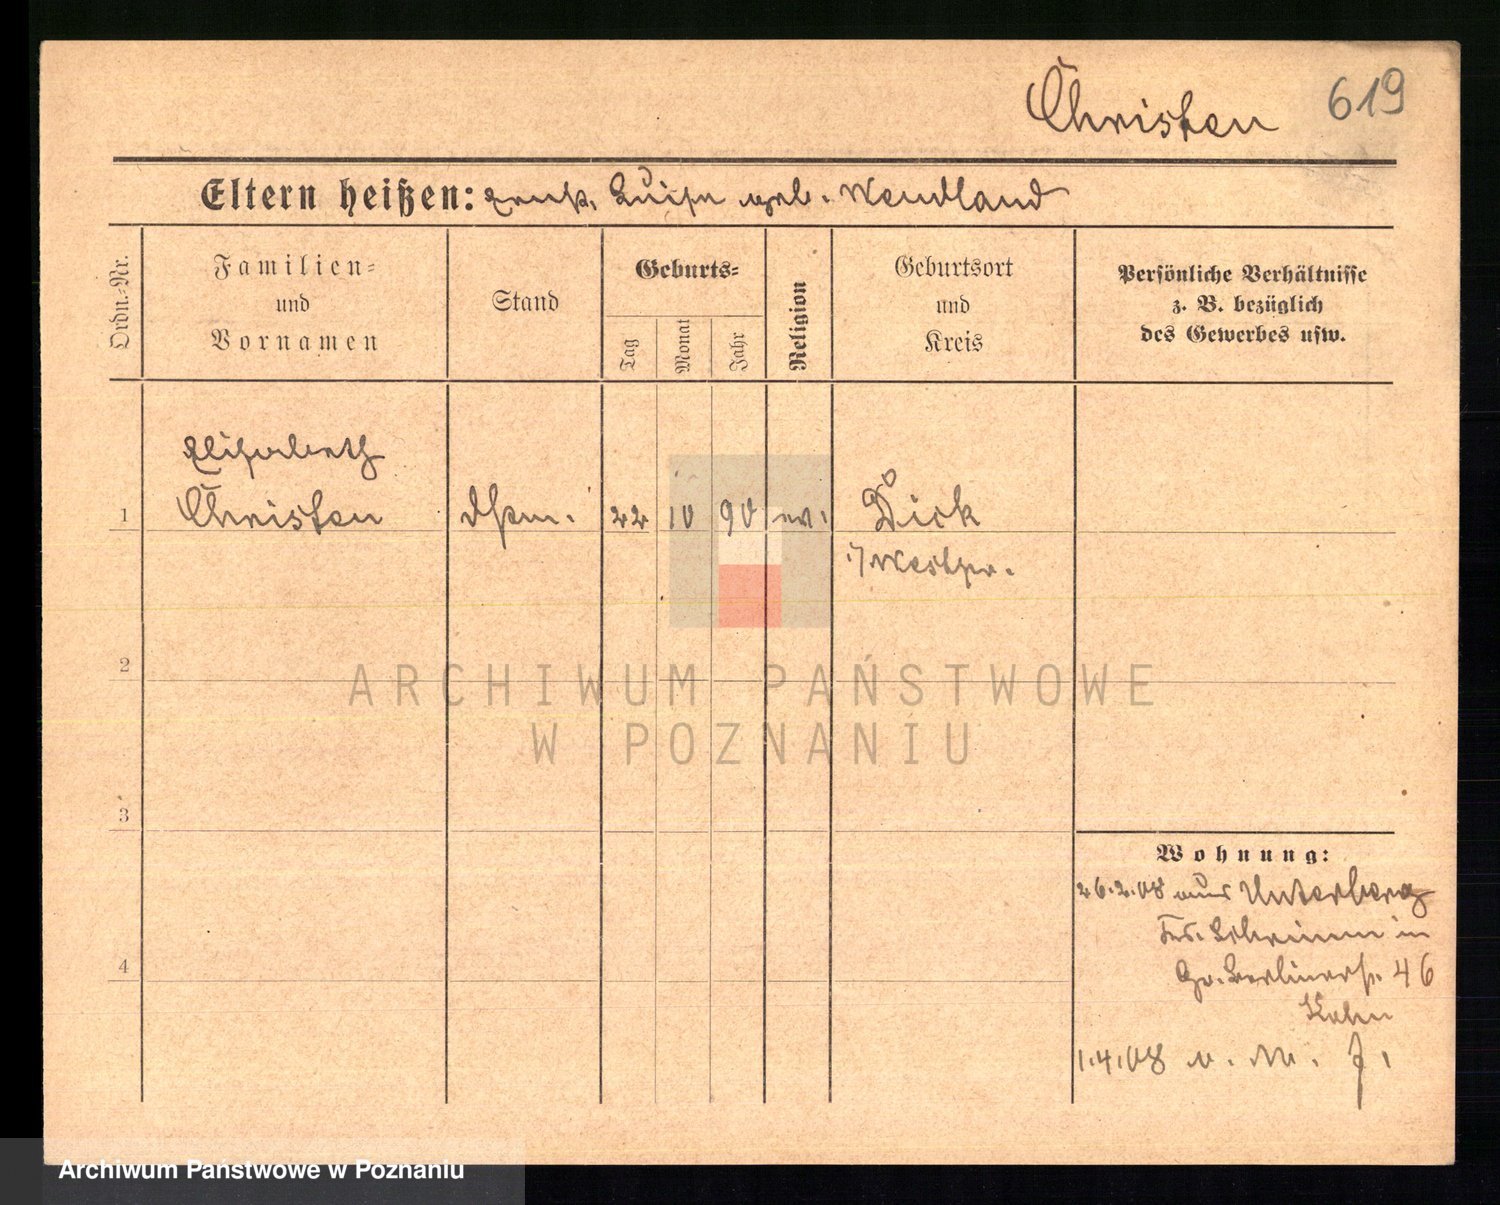 Christen 619
Eltern heißen: Ernst, Luise geb. Wendland
Ordn.-Nr.
Familien-
und
Vornamen
Stand
Geburts-
Tag
Monat
Jahr
Religion
Geburtsort
und
Kreis
Persönliche Verhältnisse
z. B. bezüglich
des Gewerbes usw.
Elisabeth
1 Christen 22 10 90 ev. Dick
i/Westpr.
2
3
4
Wohnung:
26.2.08 aus Unterberg
Krs. Schrimm in
Gr. Berlinerstr. 46
1.4.08 n. M. J.
ARCHIWUM PAŃSTWOWE
W POZNANIU
Archiwum Państwowe w Poznaniu